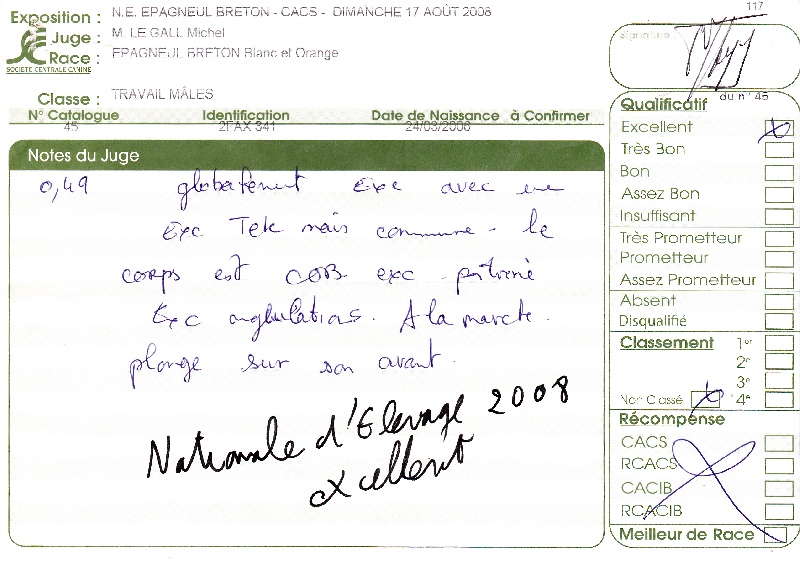 117
Exposition : N.E. EPAGNEUL BRETON - CACS - DIMANCHE 17 AOÛT 2008
Juge : M. LE GALL Michel
Race : EPAGNEUL BRETON Blanc et Orange
SOCIÉTÉ CENTRALE CANINE
Classe : TRAVAIL MÂLES
N° Catalogue Identification Date de Naissance à Confirmer
45 2FAX 341 24/03/2006
Notes du Juge
0,49 globalement Exc avec une
Exc Tete mais commune - le
corps est COB exc poitrine
Exc angulations. A la marche
plonge sur son avant.
Nationale d'Elevage 2008
excellent
signature
du n° 45
Qualificatif
Excellent
Très Bon
Bon
Assez Bon
Insuffisant
Très Prometteur
Prometteur
Assez Prometteur
Absent
Disqualifié
Classement 1er
2e
3e
Non Classé 4e
Récompense
CACS
RCACS
CACIB
RCACIB
Meilleur de Race